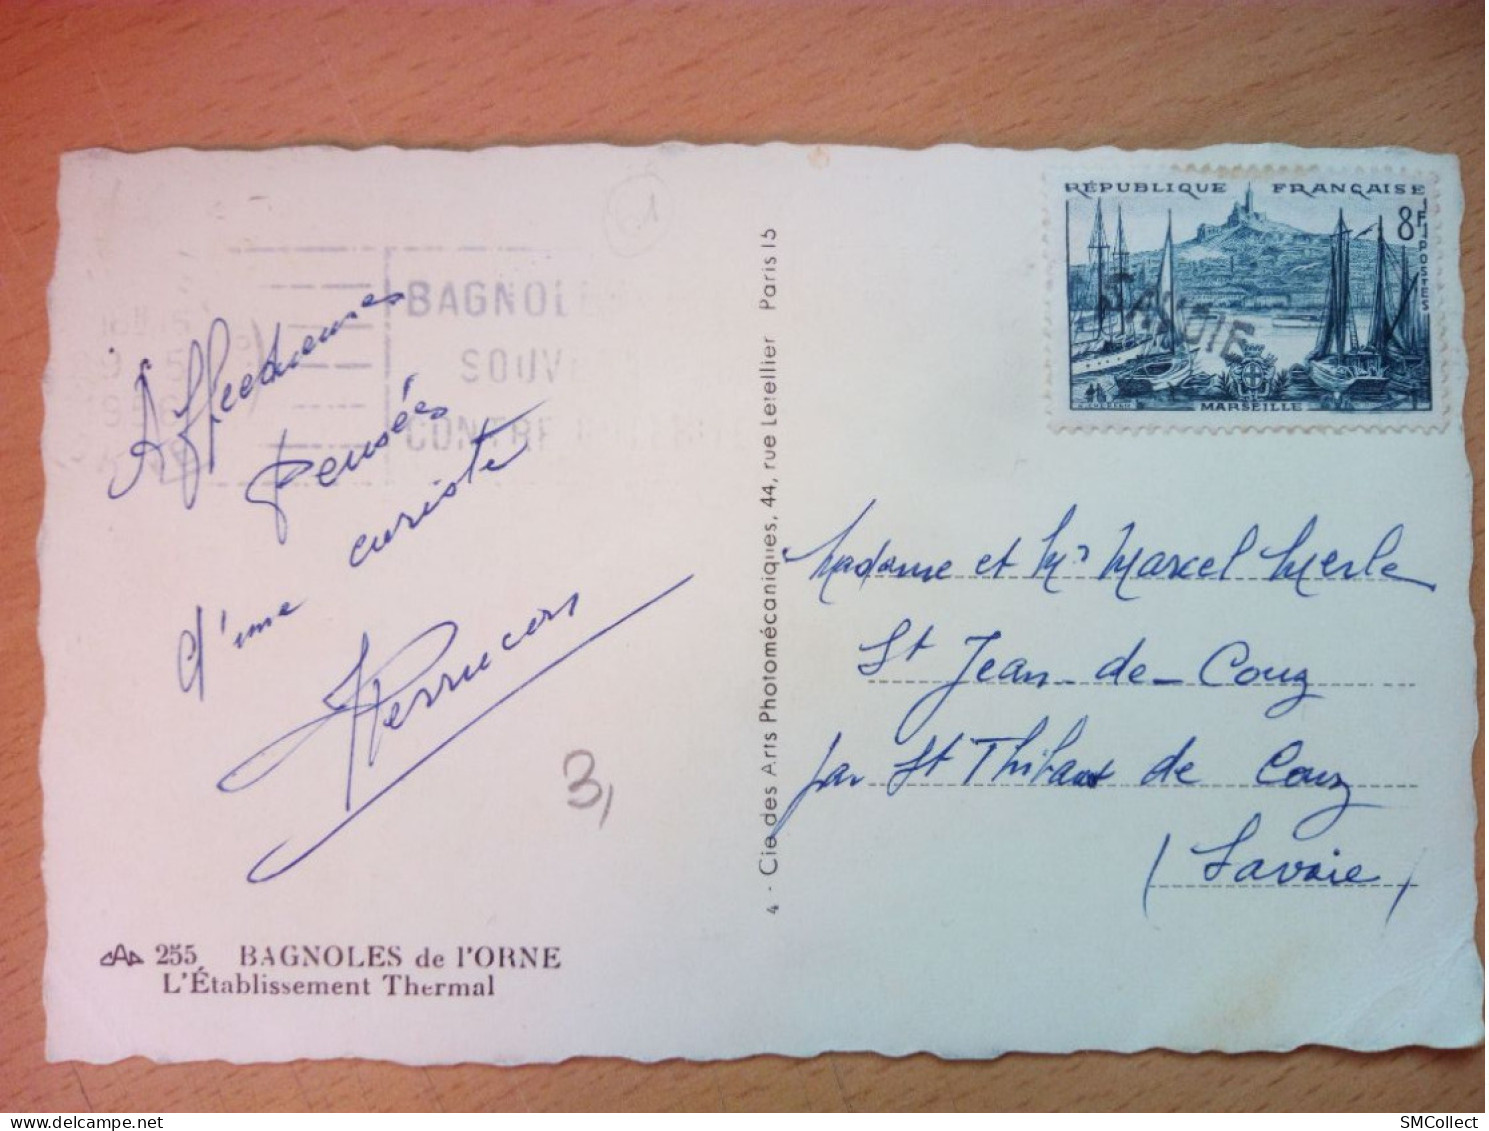 RÉPUBLIQUE FRANÇAISE
8F
POSTES
SAVOIE
MARSEILLE
BAGNOLES
SOUV
CONTRE
Affectueuses
pensées
d'une curiste
Perrucon
3,
4 - Cie des Arts Photomécaniques, 44, rue Letellier Paris 15
Madame et Mr Marcel Merle
St Jean-de-Couz
par St Thibaut de Couz
(Savoie)
255 BAGNOLES de l'ORNE
L'Établissement Thermal
SMCollect